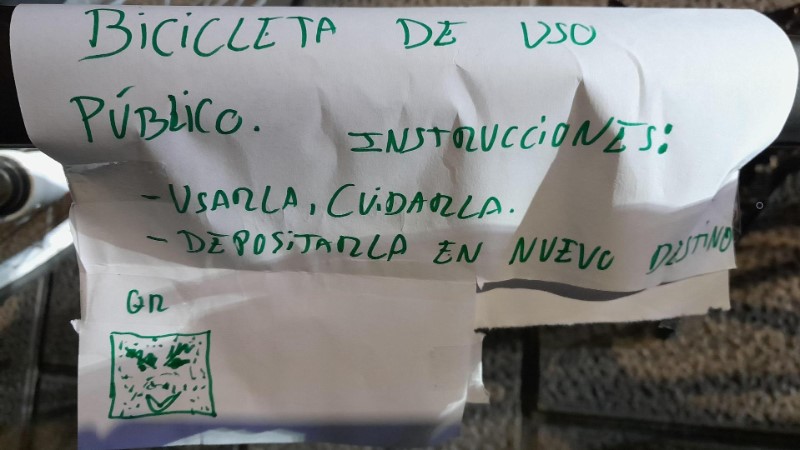 BICICLETA DE USO
PÚBLICO.
INSTRUCCIONES:
- USARLA, CUIDARLA.
- DEPOSITARLA EN NUEVO DESTINO
QR